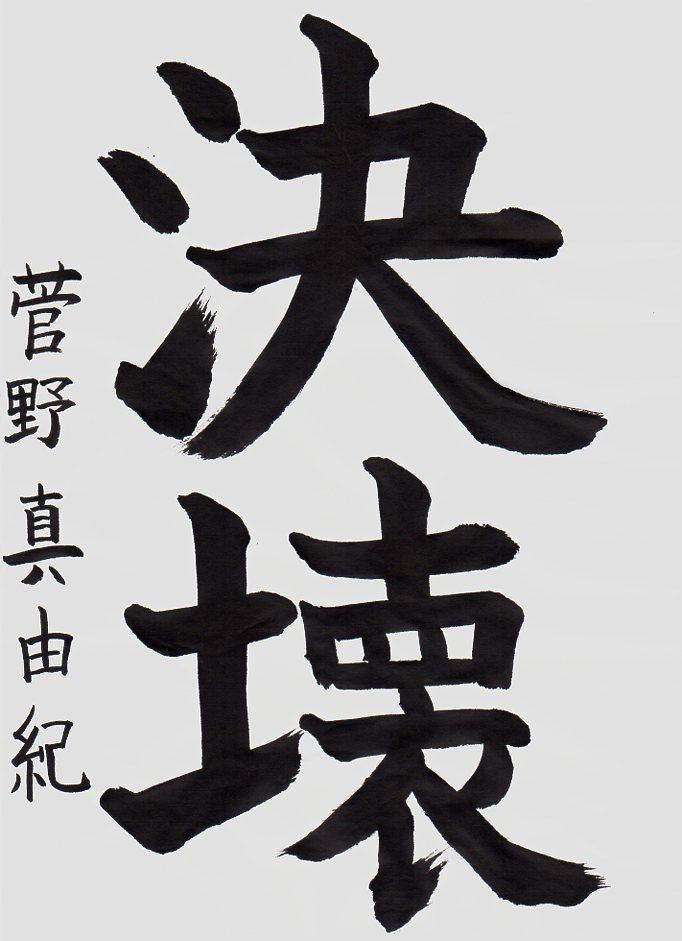 決壊
菅野真由紀